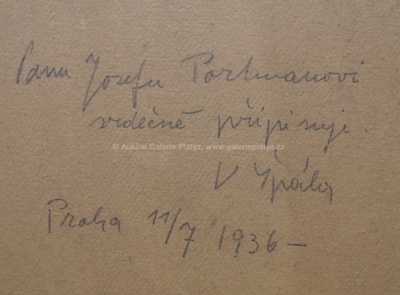 Panu Josefu Portmanovi
srdečně připisuje.
© Aukční Galerie Platýz, www.galerieplatyz.cz
V Špála
Praha 11/7 1936 –